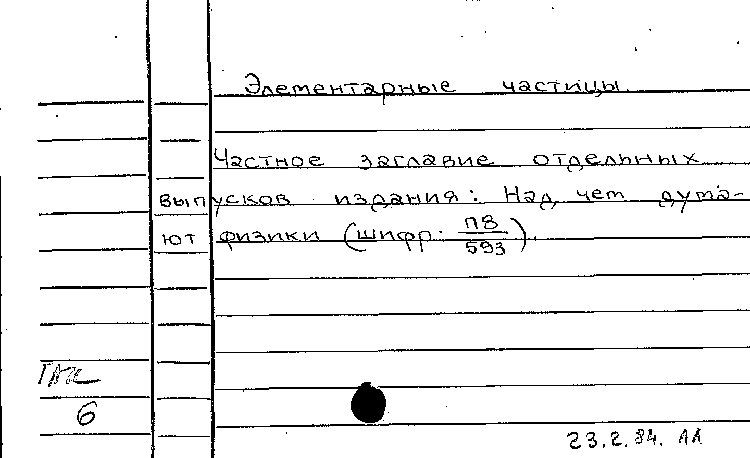 Элементарные частицы.
Частное заглавие отдельных
выпусков издания: Над чем дума-
ют физики (шифр: П8/593).
6
23.2.84. АЛ